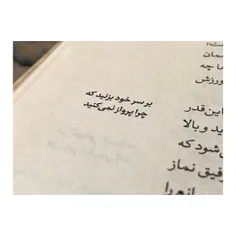 بر سر خود بزنید که
چرا پرواز نمی‌کنید
مان
ما چه
ورزش
این قدر
ید و بالا
شود که
فیق نماز
انع را